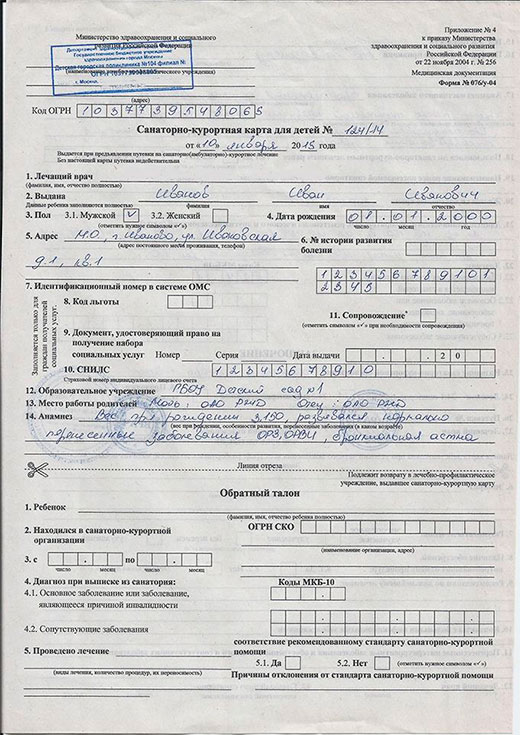 Приложение № 4
Министерство здравоохранения и социального
к приказу Министерства
развития Российской Федерации
здравоохранения и социального развития
Российской Федерации
от 22 ноября 2004 г. № 256
Государственное бюджетное учреждение
здравоохранения города Москвы
Детская городская поликлиника №104 филиал №
г. Москва
Медицинская документация
Форма № 076/у-04
(адрес)
Код ОГРН 1037739548065
Санаторно-курортная карта для детей № 124/14
от «10» января 2015 года
Выдается при предъявлении путевки на санаторно(амбулаторно)-курортное лечение
Без настоящей карты путевка недействительна
1. Лечащий врач
(фамилия, имя, отчество полностью)
2. Выдана Иванов Иван Иванович
Данные ребенка заполняются полностью фамилия имя отчество
3. Пол 3.1. Мужской ✓ 3.2. Женский 4. Дата рождения 08.01.2000
(отметить нужное символом «✓») число месяц год
5. Адрес М.О., г. Иваново, ул. Ивановская
(адрес постоянного места проживания, телефон)
6. № истории развития
болезни
д.1, кв.1
123456789101
2345
7. Идентификационный номер в системе ОМС
Заполняется только для
граждан получателей
социальных услуг.
8. Код льготы
11. Сопровождение*
(отметить символом «✓» при необходимости сопровождения)
9. Документ, удостоверяющий право на
получение набора
социальных услуг Номер Серия Дата выдачи . . 20
10. СНИЛС 12345678910
Страховой номер индивидуального лицевого счета
12. Образовательное учреждение ГБОУ Детский сад №1
13. Место работы родителей Мать: ОАО РЖД Отец: ОАО РЖД
14. Анамнез Вес при рождении 3,150, развивался нормально
(вес при рождении, особенности развития, перенесенные заболевания (в каком возрасте)
перенесенные заболевания ОРЗ, ОРВИ, бронхиальная астма
Линия отреза
Подлежит возврату в лечебно-профилактическое
учреждение, выдавшее санаторно-курортную карту
Обратный талон
1. Ребенок
(фамилия, имя, отчество ребенка полностью)
2. Находился в санаторно-курортной
организации
ОГРН СКО
(наименование организации, адрес)
3. с . по .
число месяц число месяц
4. Диагноз при выписке из санатория: Коды МКБ-10
4.1. Основное заболевание или заболевание,
являющееся причиной инвалидности
4.2. Сопутствующие заболевания
соответствие рекомендованному стандарту санаторно-курортной
помощи
5. Проведено лечение
5.1. Да 5.2. Нет (отметить нужное символом «✓»)
(виды лечения, количество процедур, их переносимость)
Причины отклонения от стандарта санаторно-курортной помощи